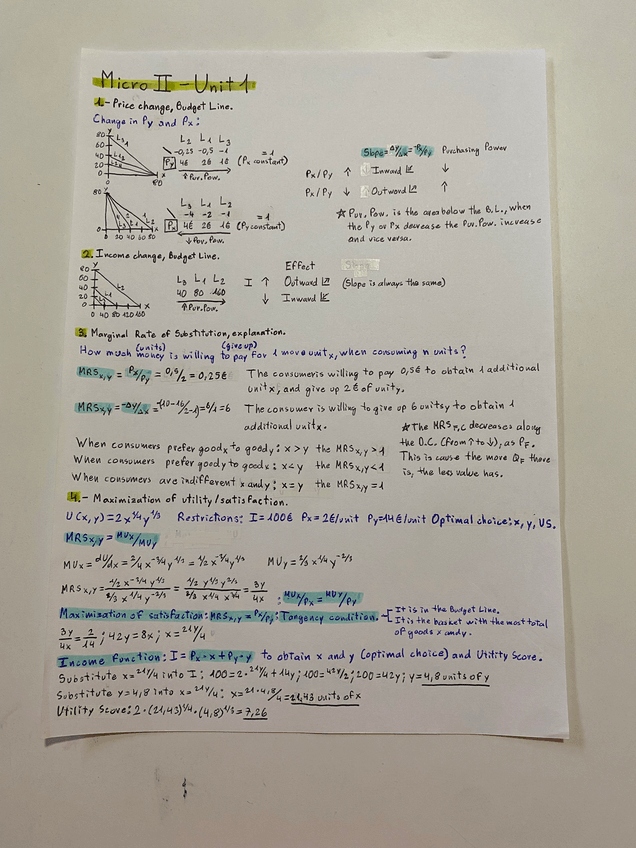 Micro II - Unit 1
1.- Price change, Budget Line.
Change in Py and Px:
80 y
60
40
20
0
L3
L1
L2
x
80
L2 L1 L3
-0,25 -0,5 -1
Py 4€ 2€ 1€ (Px constant) =1
↑ Pur. Pow.
Slope = Δy/Δx = -Px/Py Purchasing Power
Px/Py ↑ Inward ↓
Px/Py ↓ Outward ↑
80 y
0 20 40 60 80 x
L3 L1 L2
-4 -2 -1
Px 4€ 2€ 1€ (Py constant) =1
↓ Pur. Pow.
☆ Pur. Pow. is the area below the B.L., when
the Py or Px decrease the Pur. Pow. increase
and vice versa.
2. Income change, Budget Line.
80 y
60
40
20
0 40 80 120 160 x
L3 L1 L2
40 80 160
↑ Pur. Pow.
Effect
I ↑ Outward (Slope is always the same)
↓ Inward
3. Marginal Rate of Substitution, explanation.
(units) (give up)
How much money is willing to pay for 1 more unit x, when consuming n units?
MRSx,y = Px/Py = 0,5/2 = 0,25€ The consumer is willing to pay 0,5€ to obtain 1 additional
unit x, and give up 2€ of unit y.
MRSx,y = -Δy/Δx = -(10-16/2-1) = 6/1 = 6 The consumer is willing to give up 6 units y to obtain 1
additional unit x.
☆ The MRS F,C decreases along
the O.C. (from ↑ to ↓), as PF.
This is cause the more QF there
is, the less value has.
When consumers prefer good x to good y: x > y the MRSx,y > 1
When consumers prefer good y to good x: x < y the MRSx,y < 1
When consumers are indifferent x and y: x = y the MRSx,y = 1
4.- Maximization of utility/satisfaction.
U(x,y) = 2x^1/4 y^1/3 Restrictions: I = 100€ Px = 2€/unit Py = 14€/unit Optimal choice: x, y, US.
MRSx,y = MUx/MUy
MUx = dU/dx = 2/4 x^-3/4 y^1/3 = 1/2 x^-3/4 y^1/3 MUy = 2/3 x^1/4 y^-2/3
MRSx,y = 1/2 x^-3/4 y^1/3 / 2/3 x^1/4 y^-2/3 = 1/2 y^1/3 y^2/3 / 2/3 x^1/4 x^3/4 = 3y/4x ; MUx/Px = MUy/Py
Maximization of satisfaction: MRSx,y = Px/Py; Tangency condition.
It is in the Budget Line.
It is the basket with the most total
of goods x and y.
3y/4x = 2/14 ; 42y = 8x ; x = 21y/4
Income Function: I = Px·x + Py·y to obtain x and y (optimal choice) and Utility Score.
Substitute x = 21y/4 into I: 100 = 2·21y/4 + 14y; 100 = 49y/2; 200 = 42y; y = 4,8 units of y
Substitute y = 4,8 into x = 21y/4: x = 21·4,8/4 = 21,43 units of x
Utility Score: 2·(21,43)^1/4·(4,8)^1/3 = 7,26